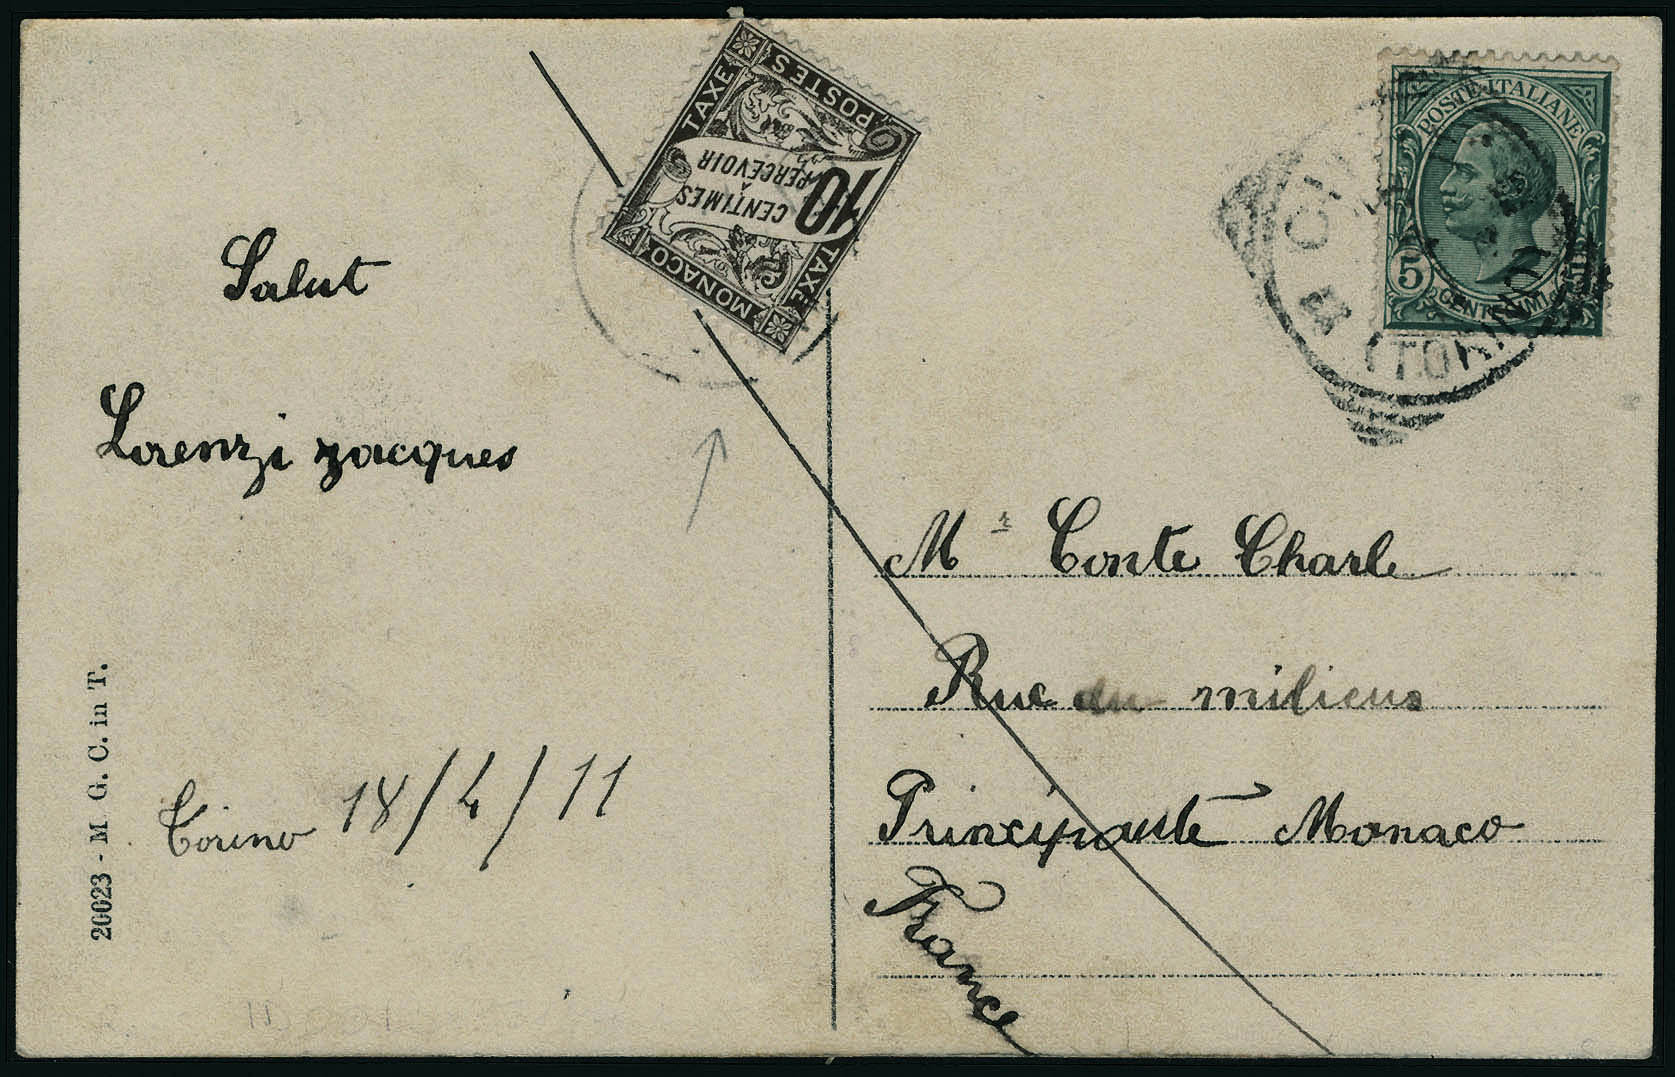 Salut
Lorenzi Jacques
Torino 18/4/11
20023 - M. G. C. in T.
MONACO
TAXE
TAXE
POSTES
10
CENTIMES
À
PERCEVOIR
POSTE ITALIANE
5
CENTESIMI
(TORINO)
Mr Conte Charle
Rue du milieus
Principauté Monaco
France